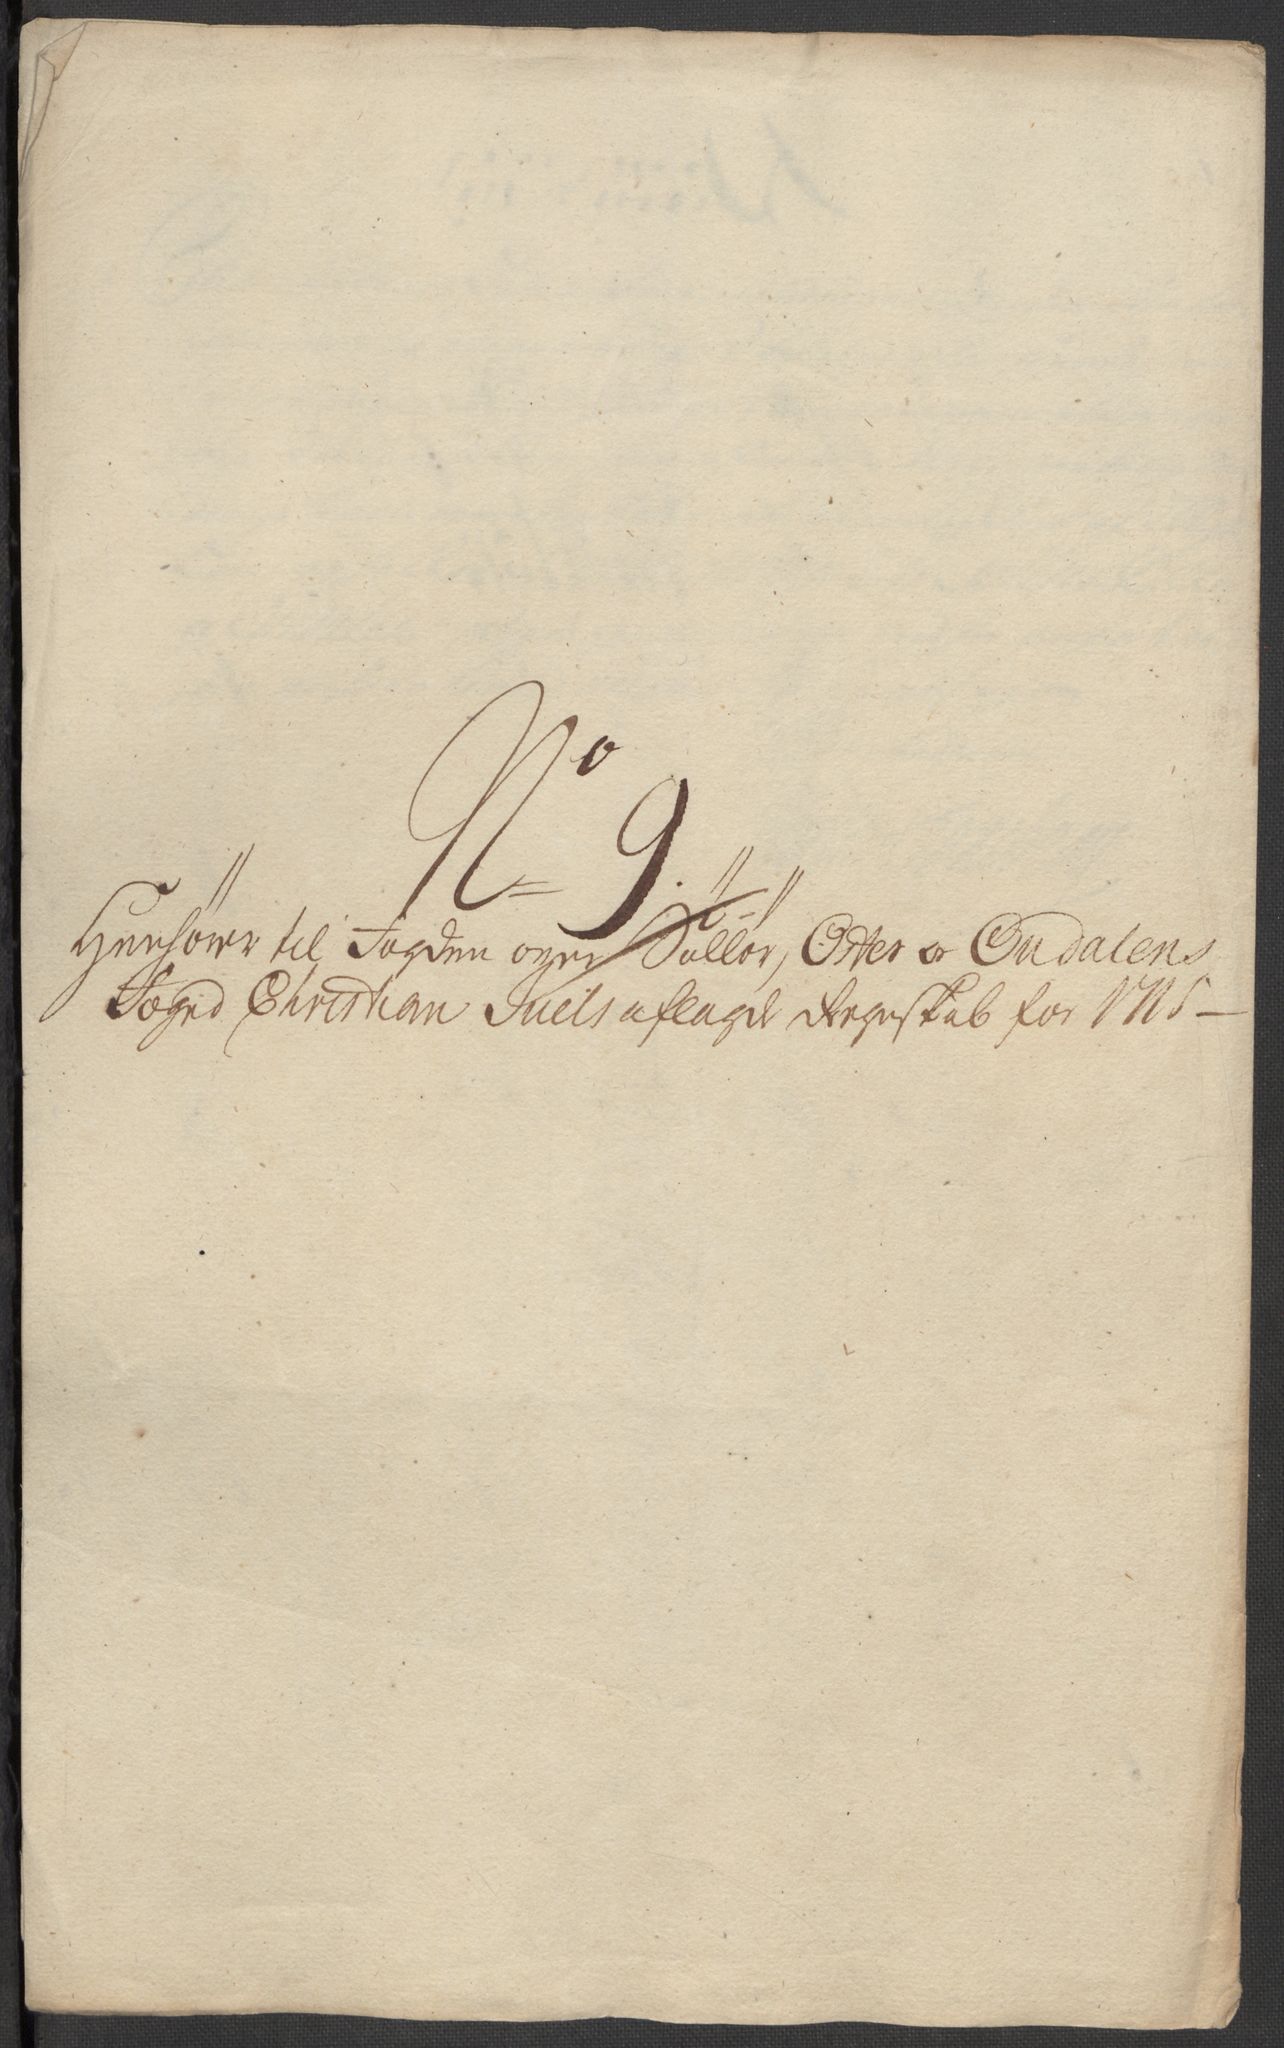 No 9.
Henhörer til Fogden over Sollör, Öster og Oudalens
Fogd: Christian Juels aflagde Regnskab for 1715 –